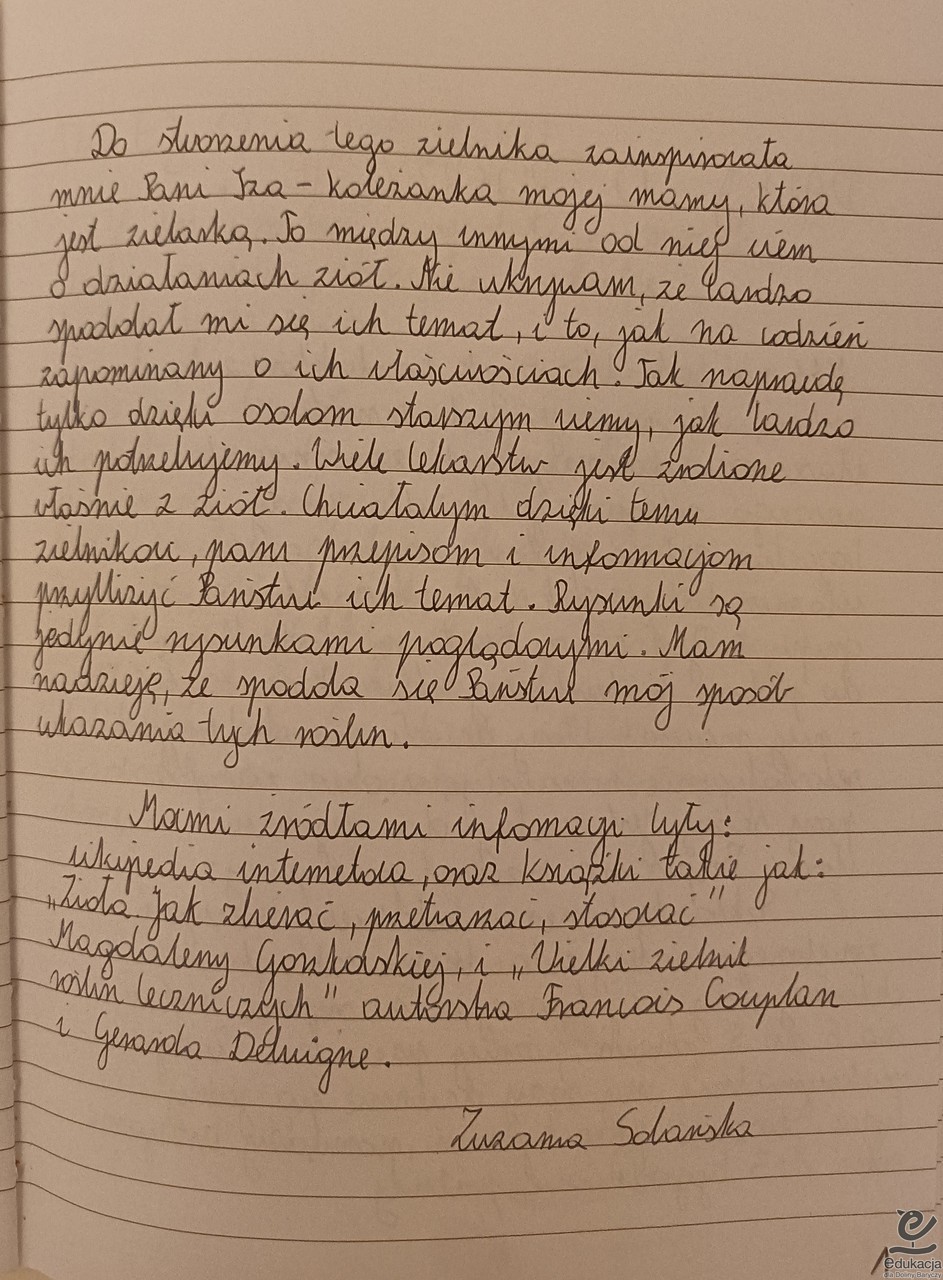 Do stworzenia tego zielnika zainspirowała
mnie Pani Iza - koleżanka mojej mamy, która
jest zielarką. To między innymi od niej wiem
o działaniach ziół. Nie ukrywam, że bardzo
spodobał mi się ich temat, i to, jak na codzień
zapominamy o ich właściwościach. Tak naprawdę
tylko dzięki osobom starszym wiemy, jak bardzo
ich potrzebujemy. Wiele lekarstw jest zrobione
właśnie z ziół. Chciałabym dzięki temu
zielnikowi, paru przepisom i informacjom
przybliżyć Państwu ich temat. Rysunki są
jedynie rysunkami poglądowymi. Mam
nadzieję, że spodoba się Państwu mój sposób
ukazania tych roślin.
Moimi źródłami infomacji były:
wikipedia internetowa, oraz książki takie jak:
„Zioła. Jak zbierać, przetwarzać, stosować"
Magdaleny Gorzkowskiej, i „Wielki zielnik
roślin leczniczych" autorstwa Francois Couplan
i Gerarda Débuigne.
Zuzanna Sobańska
edukacja
dla Doliny Baryczy